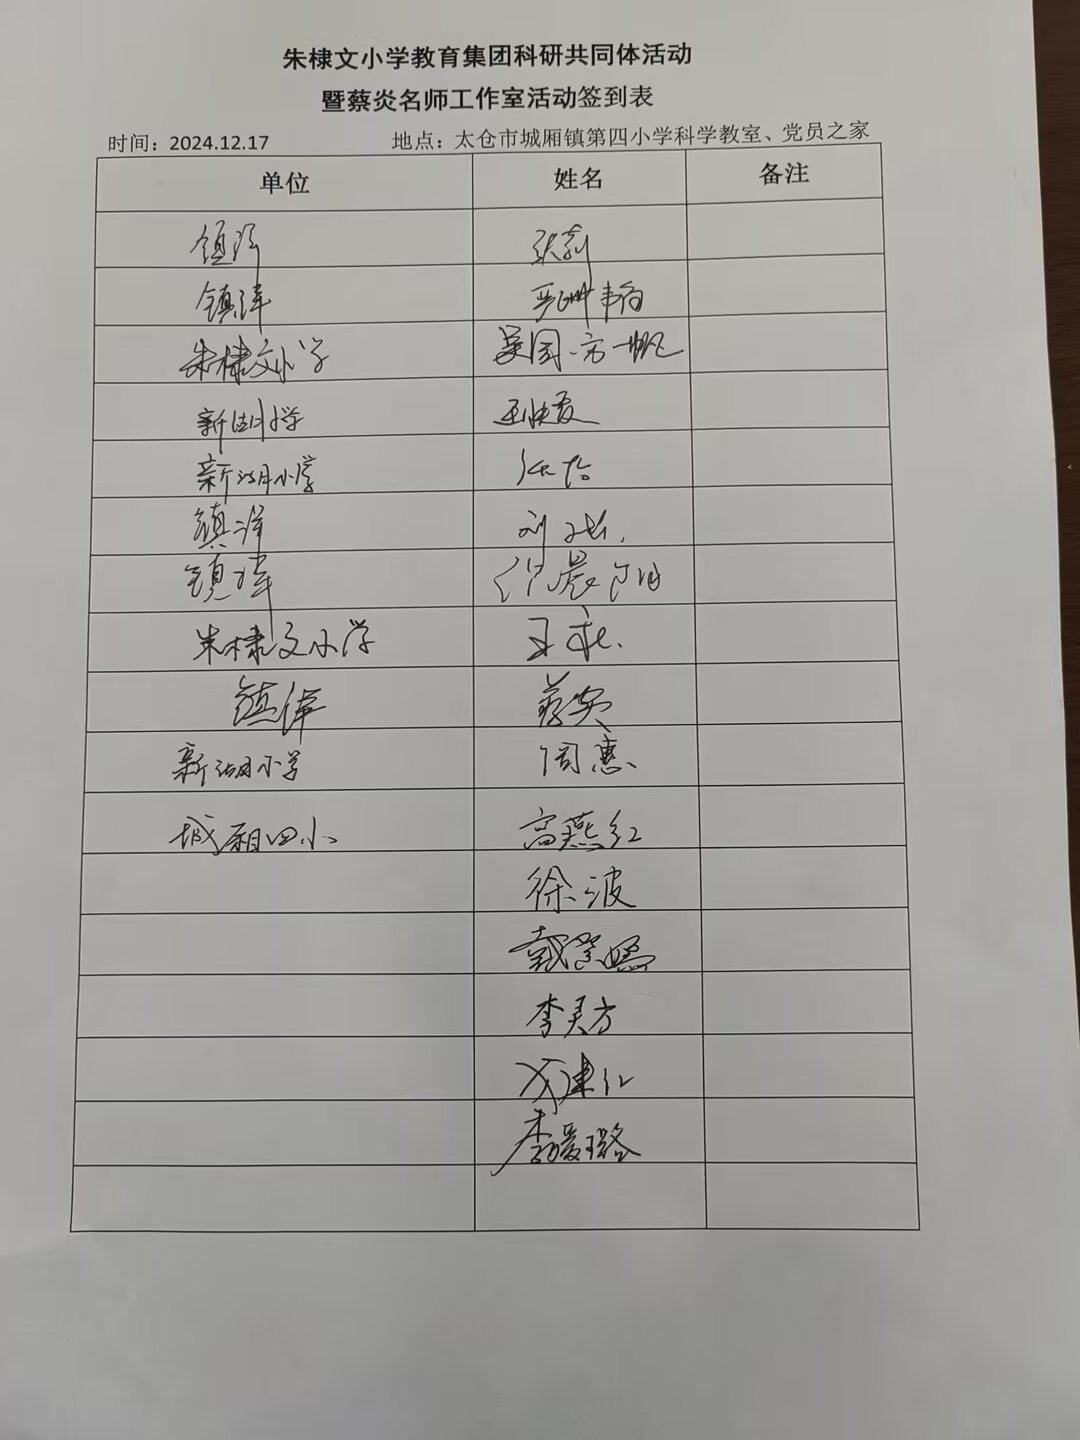 朱棣文小学教育集团科研共同体活动
暨蔡炎名师工作室活动签到表
时间：2024.12.17 地点：太仓市城厢镇第四小学科学教室、党员之家
单位 姓名 备注
镇洋 张莉
镇洋
朱棣文小学 吴囡、方一帆
新湖小学
新湖小学
镇洋 刘
镇洋 倪晨阳
朱棣文小学 王
镇洋 蔡炎
新湖小学 周惠
城厢四小 高燕红
徐波
戴
李灵方
建红
李爱璐